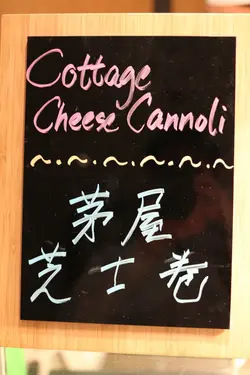 Cottage
Cheese Cannoli
茅屋
芝士卷